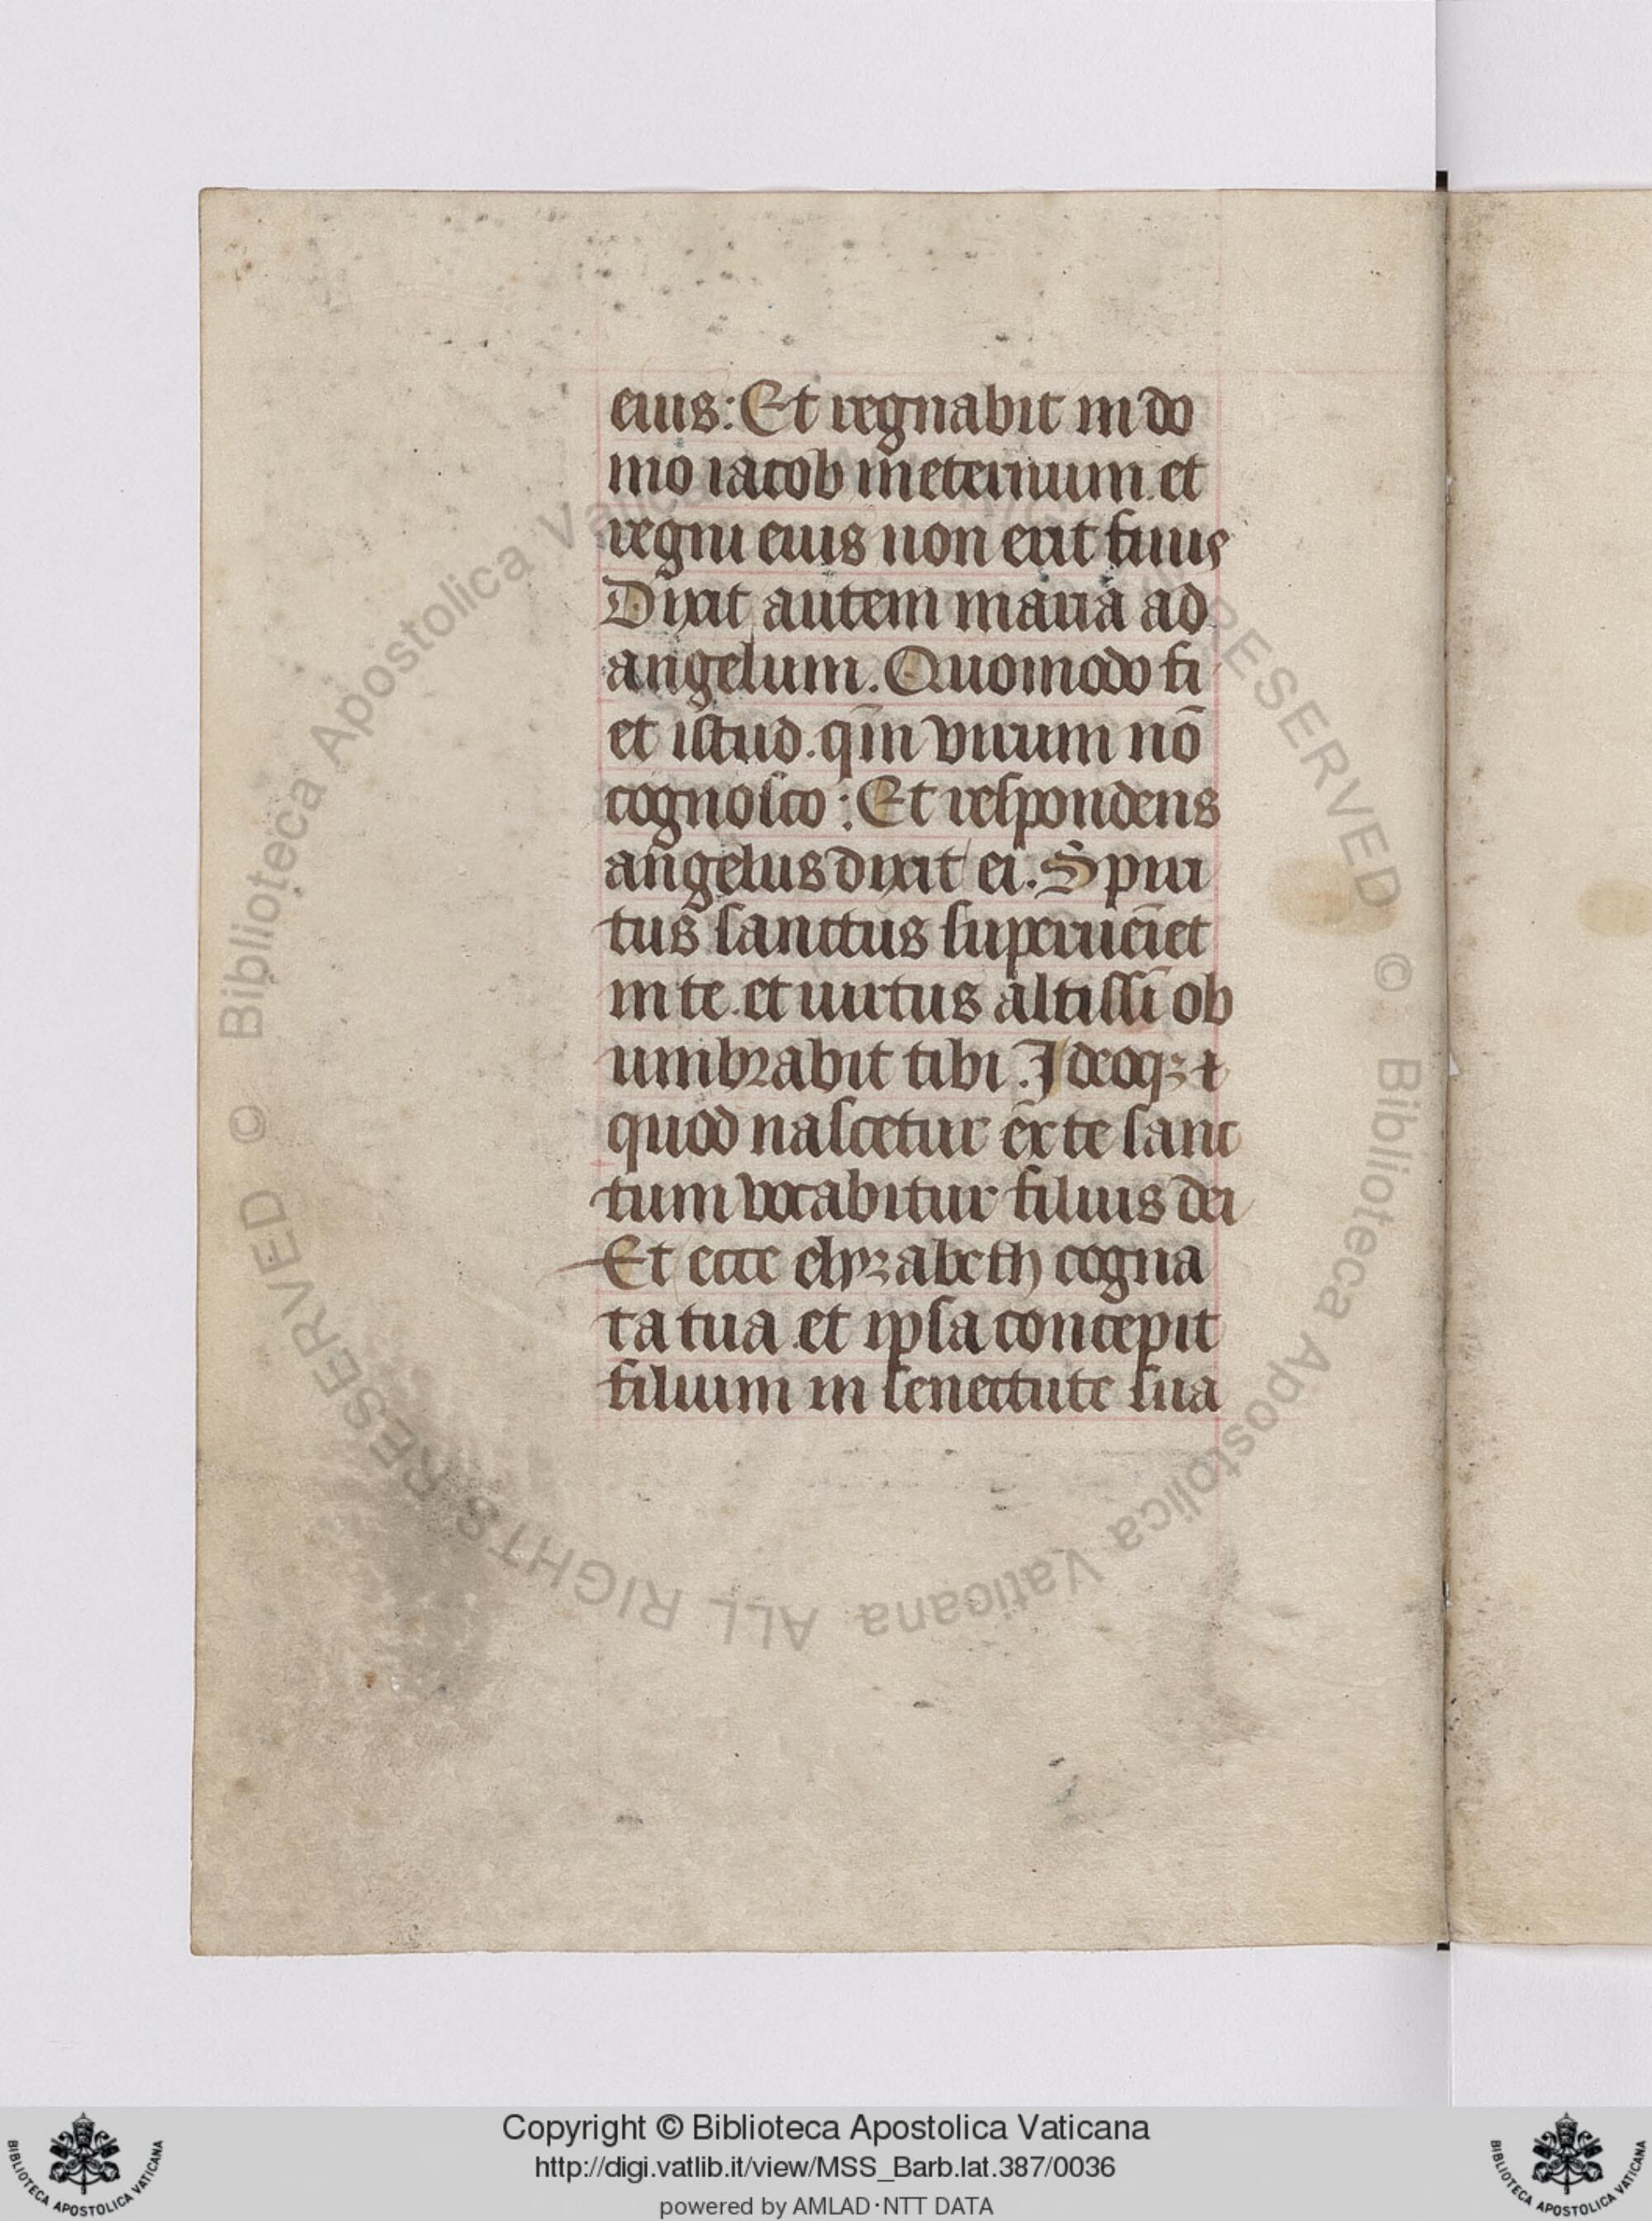 eius: Et regnabit in do
mo iacob in eternum. et
regni eius non erit finis
Dixit autem maria ad
angelum. Quomodo fi
et istud. qm̄ virum nō
cognosco: Et respondens
angelus dixit ei. Spiri
tus sanctus superueniet
in te. et uirtus altissi ob
umbrabit tibi. Ideoqȝ ⁊
quod nascetur ex te sanc
tum vocabitur filius dei
Et ecce elyzabeth cogna
ta tua et ipsa concepit
filium in senectute sua
© Biblioteca Apostolica Vaticana ALL RIGHTS RESERVED © Biblioteca Apostolica Vaticana ALL RIGHTS RESERVED
Copyright © Biblioteca Apostolica Vaticana
http://digi.vatlib.it/view/MSS_Barb.lat.387/0036
powered by AMLAD·NTT DATA
BIBLIOTECA APOSTOLICA VATICANA
BIBLIOTECA APOSTOLICA VATICANA